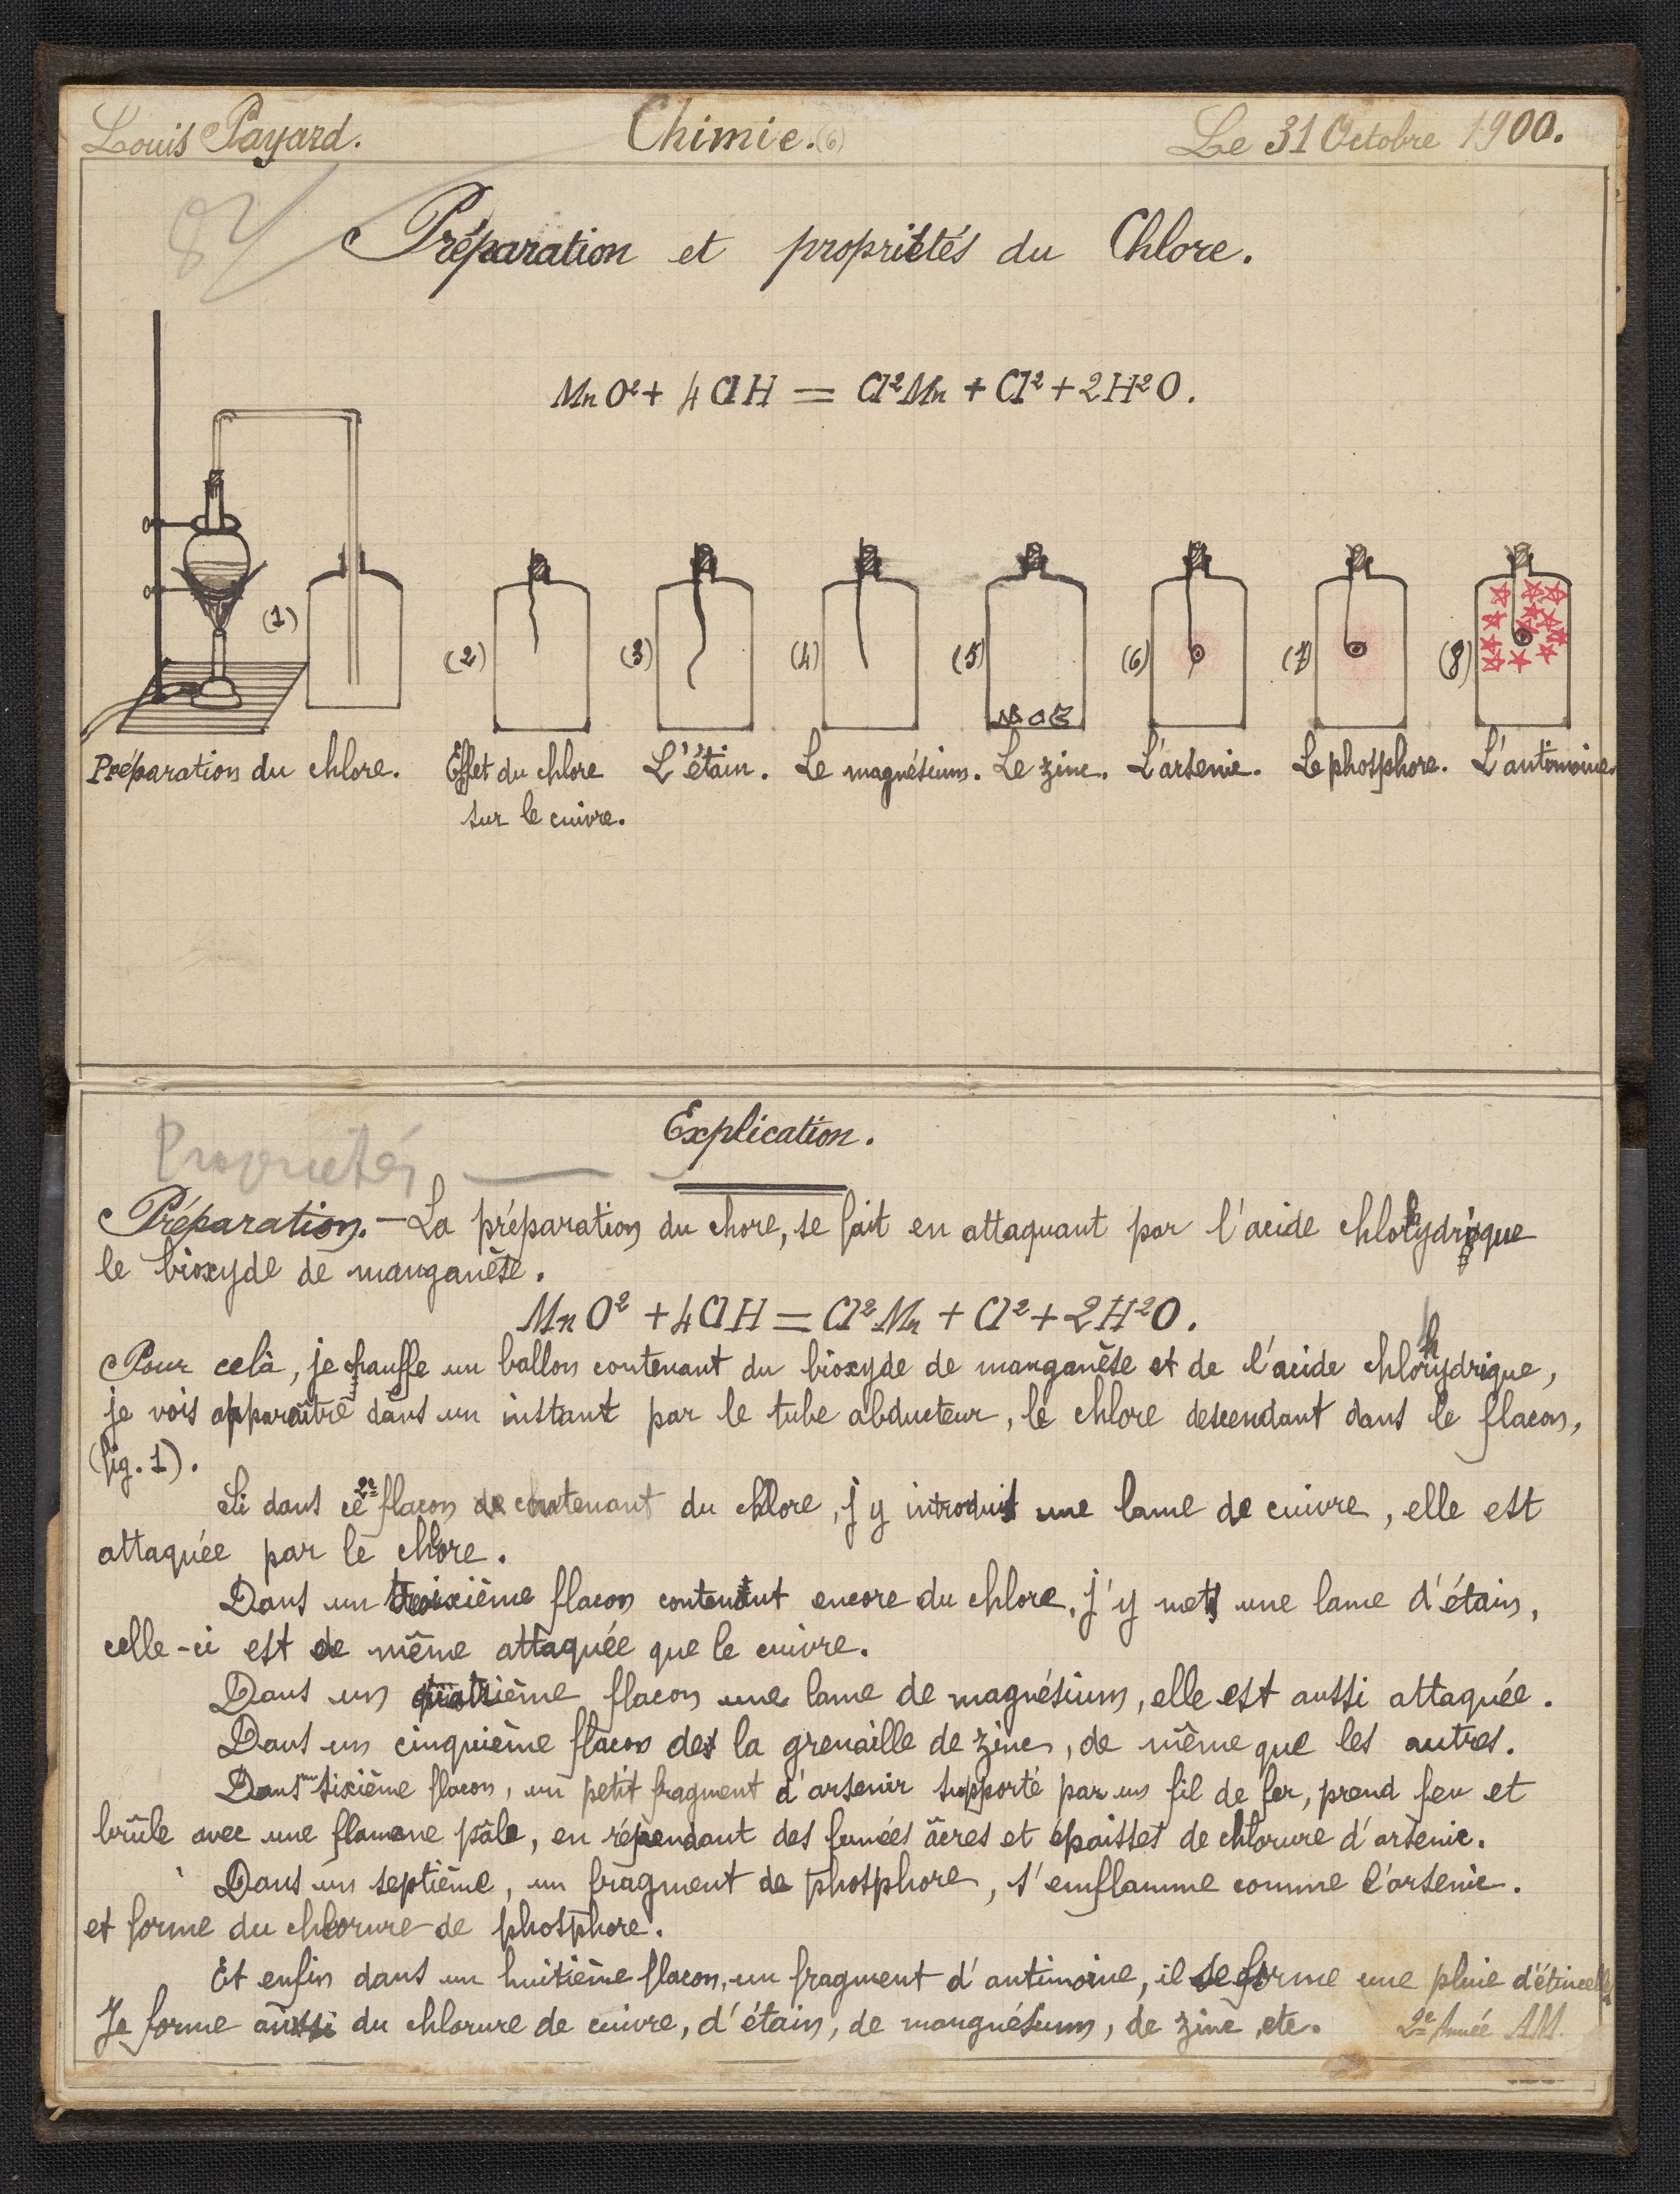 Louis Payard. Chimie. (6) Le 31 Octobre 1900.
Préparation et propriétés du Chlore.
MnO² + 4ClH = Cl²Mn + Cl² + 2H²O.
(1) (2) (3) (4) (5) (6) (7) (8)
Préparation du chlore. Effet du chlore L'étain. Le magnésium. Le zinc. L'arsenic. Le phosphore. L'antimoine.
sur le cuivre.
Explication.
Propriétés
Préparation. — La préparation du chore, se fait en attaquant par l'acide chlohydrique
le bioxyde de manganèse.
MnO² + 4ClH = Cl²Mn + Cl² + 2H²O.
Pour celà, je chauffe un ballon contenant du bioxyde de manganèse et de l'acide chlorhydrique,
je vois apparaître dans un instant par le tube abducteur, le chlore descendant dans le flacon,
(fig. 1).
Si dans ce 2e flacon contenant du chlore, j'y introduis une lame de cuivre, elle est
attaquée par le chlore.
Dans un troisième flacon contenant encore du chlore, j'y mets une lame d'étain,
celle-ci est de même attaquée que le cuivre.
Dans un quatrième flacon une lame de magnésium, elle est aussi attaquée.
Dans un cinquième flacon de la grenaille de zinc, de même que les autres.
Dans un sixième flacon, un petit fragment d'arsenir supporté par un fil de fer, prend feu et
brûle avec une flamme pâle, en répendant des fumées âcres et épaisses de chlorure d'arsenic.
Dans un septième, un fragment de phosphore, s'enflamme comme l'arsenic.
et forme du chlorure de phosphore.
Et enfin dans un huitième flacon, un fragment d'antimoine, il se forme une pluie d'étincelles
Je forme aussi du chlorure de cuivre, d'étain, de mangnésium, de zinc, etc. 2e Année AM.